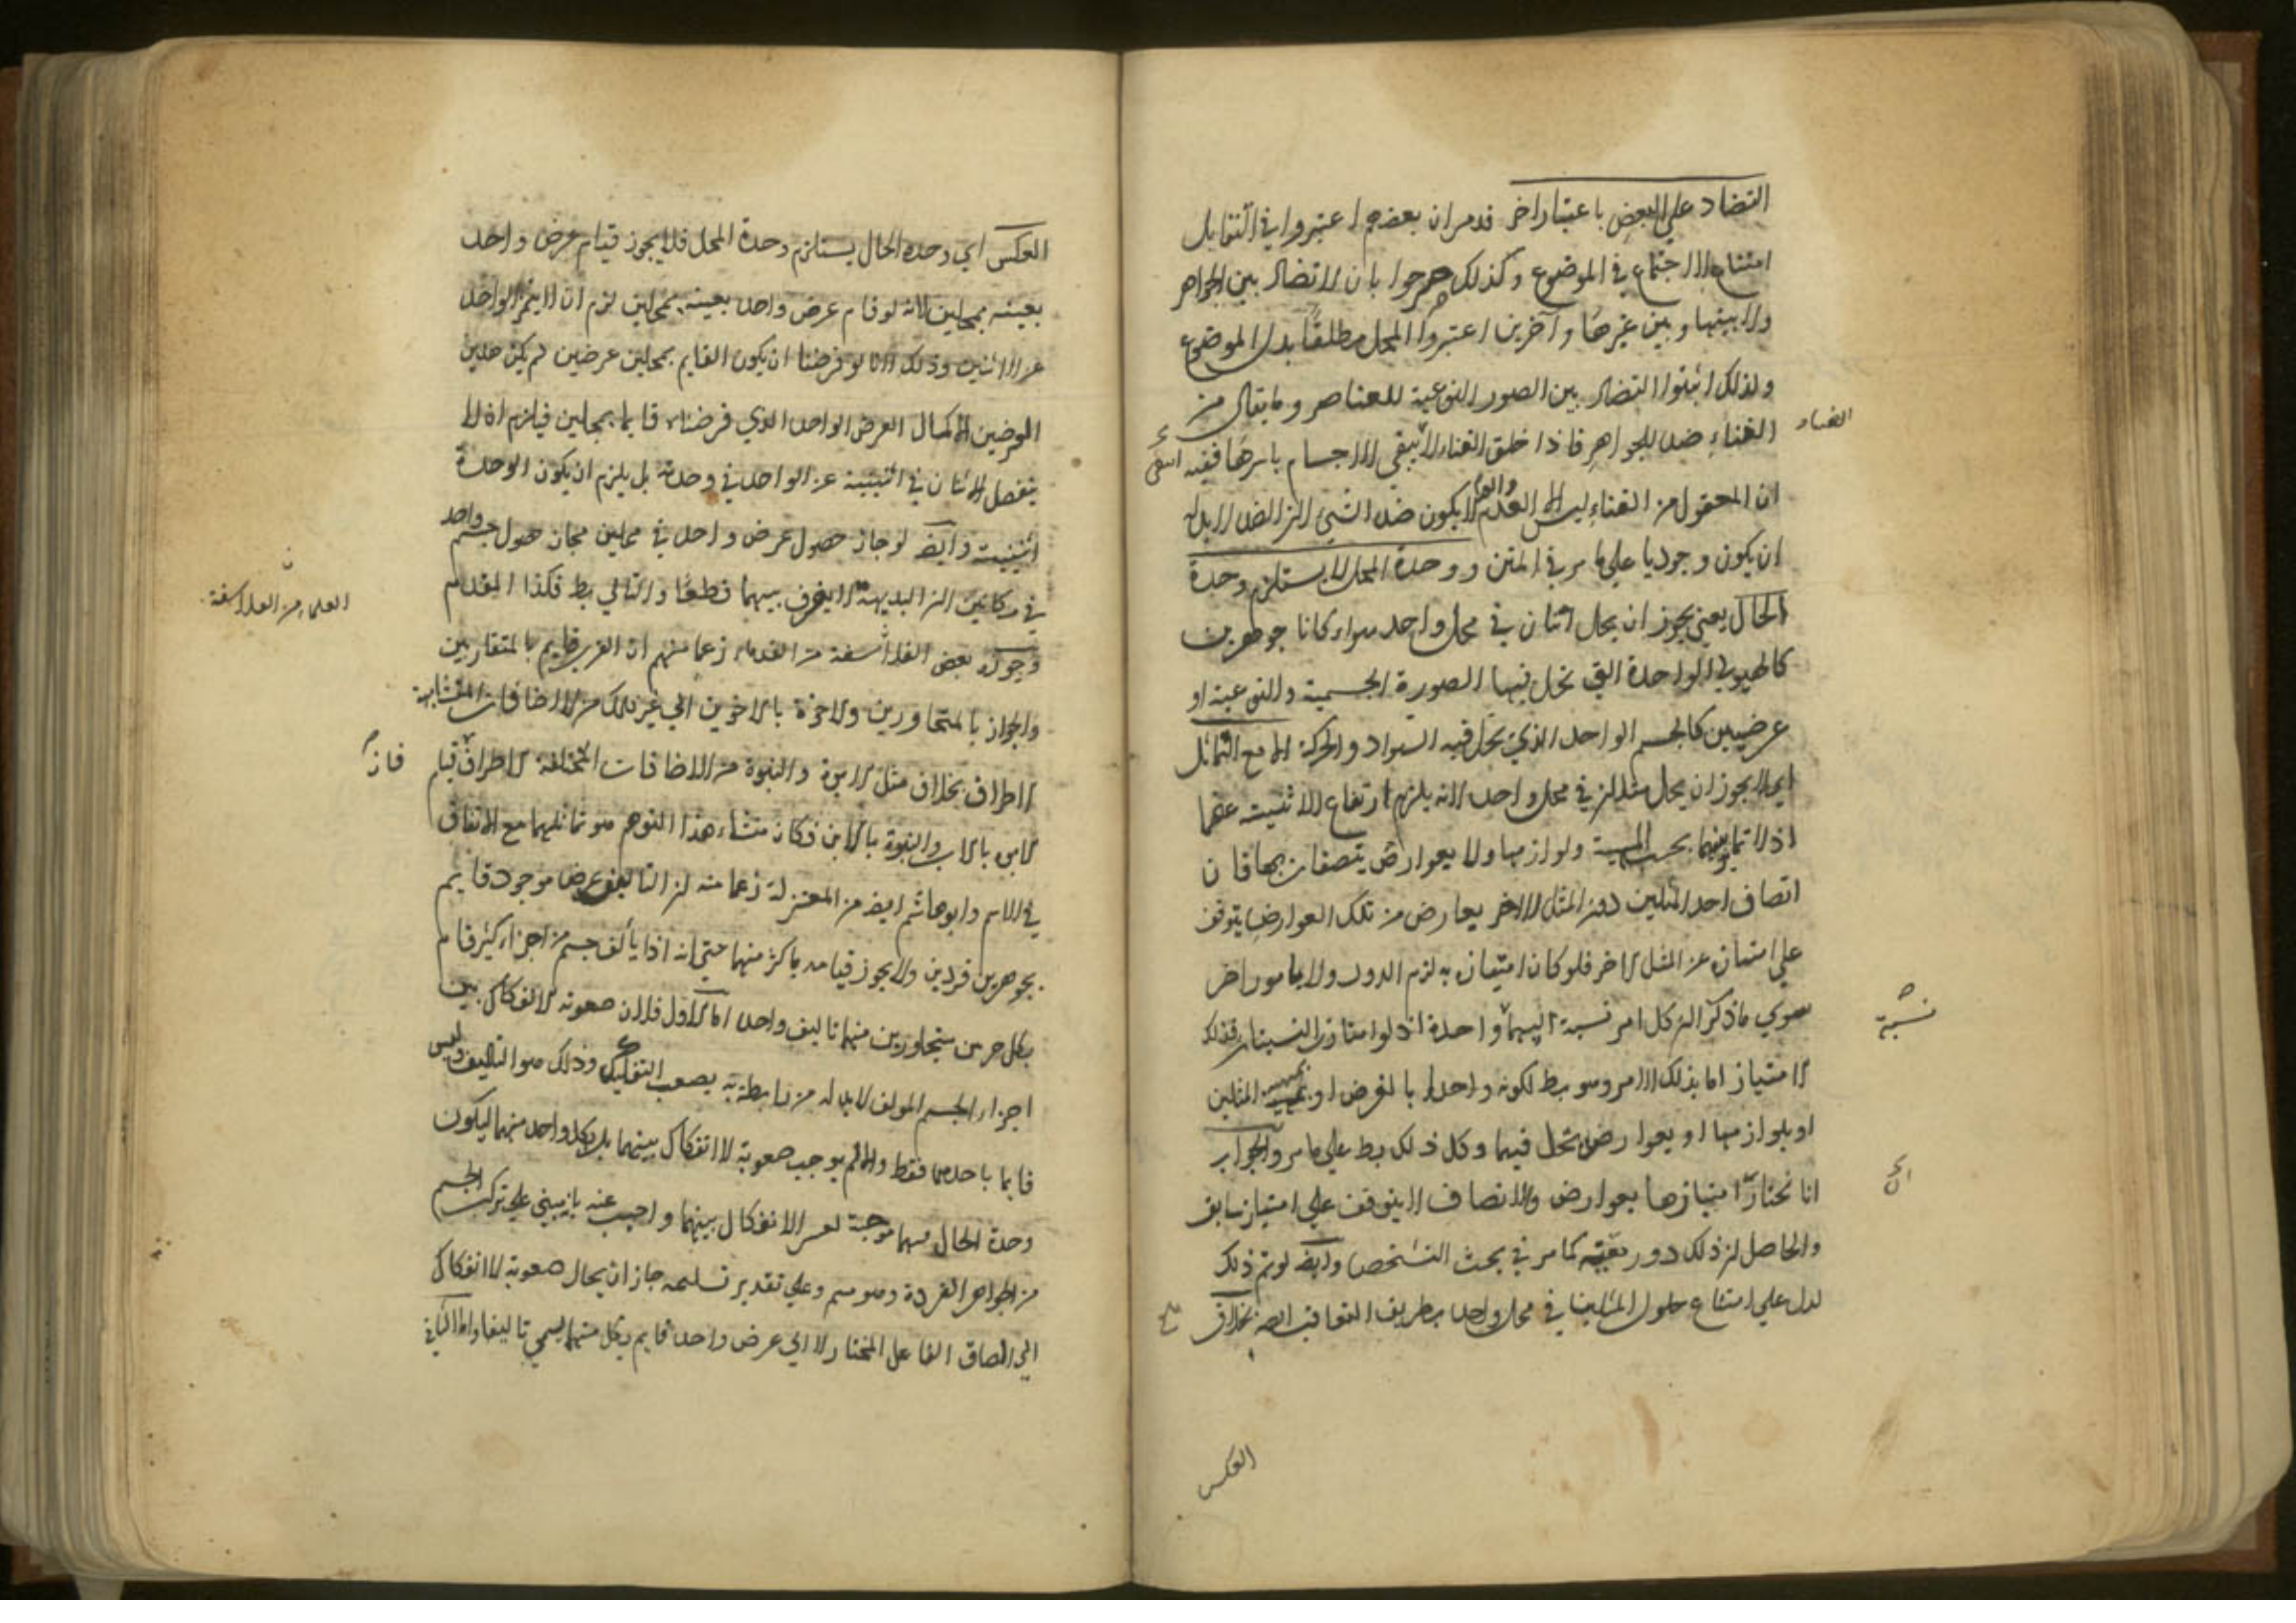 التضاد علي البعض باعتبار اخر قد مر ان بعضهم اعتبروا في التقابل
امتناع الاجتماع في الموضوع وكذلك صرحوا بان لا تضاد بين الجواهر
ولا بينها وبين غيرها وآخرين اعتبروا المحل مطلقا بدل الموضوع
ولذلك اثبتوا التضاد بين الصور النوعية للعناصر وما يقال من
الفناء
الفناء ضد للجواهر فاذا خلق الفناء لا يبقي الاجسام باسرها ففيه
ان المعقول من الفناء ليس الا العدم والعدم لا يكون ضد الشي لان الضد لا بد له
ان يكون وجوديا علي ما مر في المتن ووحدة المحل لا يستلزم وحدة
الحال يعني يجوز ان يحل اثنان في محل واحد سواء كانا جوهرين
كالهيولي الواحدة التي تحل فيها الصورة الجسمية والنوعية او
عرضيين كالجسم الواحد الذي يحل فيه السواد والحركة الا مع التماثل
اي لا يجوز ان يحل مثلان في محل واحد لانه يلزم ارتفاع الاثنينية عنهما
اذ لا تمايز بينهما بحسب المهية ولوازمها ولا بعوارض يتصفان بها فان
اتصاف احد المثلين دون المثل الاخر بعارض من تلك العوارض يتوقف
علي امتيازه عن المثل الاخر فلو كان امتيازه به لزم الدور ولا بامور اخر
سوي ما ذكر لان كل امر نسبة اليهما واحدة اذ لو امتازت النسبتان فذلك
نسبة
الامتياز اما بذلك الامر وهو بط لكونه واحدا بالفرض او بمهية المثلين
او بلوازمها او بعوارض تحل فيهما وكل ذلك بط علي ما مر والجواب
انا نختار امتيازهما بعوارض والاتصاف لا يتوقف علي امتياز سابق
والحاصل ان ذلك دور معية كما مر في بحث التشخص وايض لو تم ذلك
لدل علي امتناع حلول المثلين في محل واحد بطريق التعاقب ايضا بخلاف
العكس
العكس اي وحدة الحال يستلزم وحدة المحل فلا يجوز قيام عرض واحد
بعينه بمحلين لانه لو قام عرض واحد بعينه بمحلين لزم ان لا يتميز الواحد
عن الاثنين وذلك لانا لو فرضنا ان يكون القايم بمحلين عرضين لم يكن هذين
العرضين الا كحال العرض الواحد الذي فرضناه قايما بمحلين فيلزم ان لا
ينفصل الاثنان في اثنينية عن الواحد في وحدته بل يلزم ان يكون الوحدة
اثنينية وايض لو جاز حصول عرض واحد في محلين لجاز حصول جسم واحد
في مكانين لان البديهة لا يفرق بينهما قطعا والتالي بط فكذا المقدم
وجوزه بعض الفلاسفة من القدماء زعما منهم ان القرب قايم بالمتقاربين
القدماء من الفلاسفة
والجوار بالمتجاورين والاخوة بالاخوين الي غير ذلك من الاضافات المتشابهة
الاطراف بخلاف مثل الابوة والبنوة من الاضافات المختلفة الاطراف فان قيام
الابوة بالاب والبنوة بالابن فكان منشاء هذا التوهم هو تماثلهما مع الاتفاق
في الاسم وابو هاشم ايض من المعتزلة زعما منه ان التاليف عرض موجود قايم
بجوهرين فردين ولا يجوز قيامه باكثر منهما حتي انه اذا تألف جسم من اجزاء كثير قام
بكل جزئين متجاورين منهما تاليف واحد اما الاول فلان صعوبة الانفكاك بين
اجزاء الجسم المولف لا بد له من رابطة به يصعب التفكيك وذلك هو التاليف وليس
قايما باحدهما فقط والا لم يوجب صعوبة الانفكاك بينهما بل بكل واحد منهما ليكون
وحدة الحال فيهما موجبة لعسر الانفكاك بينهما واجيب عنه بانه مبني علي تركب الجسم
من الجواهر الفردة وهو مم وعلي تقدير تسليمه جاز ان يحال صعوبة الانفكاك
الي الصاق الفاعل المختار لا الي عرض واحد قايم بكل منهما يسمي تاليفا واما الثاني